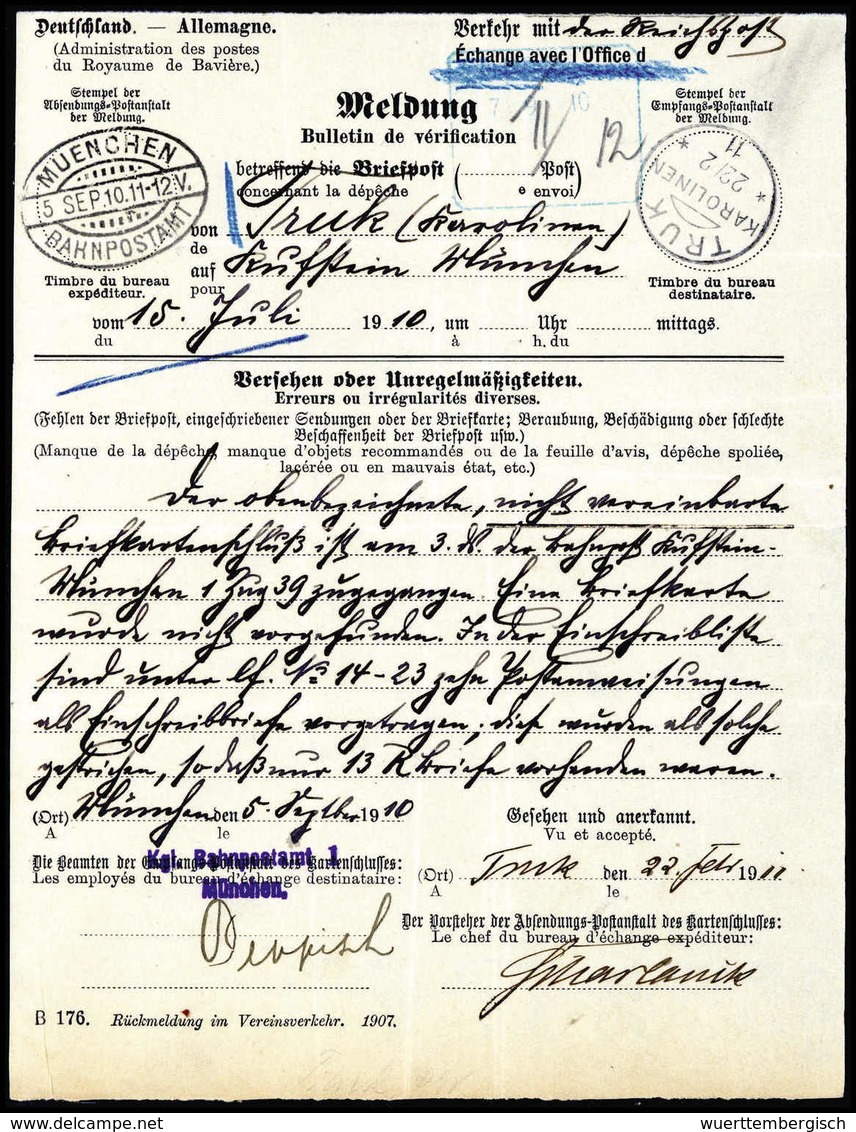 Deutschland. — Allemagne.
(Administration des postes
du Royaume de Bavière.)
Verkehr mit der Reichspost
Échange avec l'Office d
Stempel der
Absendungs-Postanstalt
der Meldung.
Meldung
Bulletin de vérification
Stempel der
Empfangs-Postanstalt
der Meldung.
11/12
MUENCHEN
5 SEP.10.11-12V.
BAHNPOSTAMT
TRUK
22/2
11
KAROLINEN
betreffend die Briefpost ( Post)
concernant la dépêche ( e envoi)
von Truk (Karolinen)
de
auf Kufstein München
pour
Timbre du bureau
expéditeur.
Timbre du bureau
destinataire.
vom 15. Juli 1910, um Uhr mittags.
du à h. du
Versehen oder Unregelmäßigkeiten.
Erreurs ou irrégularités diverses.
(Fehlen der Briefpost, eingeschriebener Sendungen oder der Briefkarte; Beraubung, Beschädigung oder schlechte
Beschaffenheit der Briefpost usw.)
(Manque de la dépêche, manque d'objets recommandés ou de la feuille d'avis, dépêche spoliée,
lacérée ou en mauvais état, etc.)
Der obenbezeichnete, nicht vereinbarte
Briefkartenschluß ist am 3. ds. der Bahnpost Kufstein-
München 1 Zug 39 zugegangen. Eine Briefkarte
wurde nicht vorgefunden. In der Einschreibliste
sind unter lf. No 14-23 zehn Postanweisungen
als Einschreibbriefe vorgetragen; diese wurden als solche
gestrichen, so daß nur 13 R Briefe vorhanden waren.
(Ort) München den 5. Septber 1910
A le
Gesehen und anerkannt.
Vu et accepté.
Die Beamten der Empfangs-Postanstalt des Kartenschlusses:
Les employés du bureau d'échange destinataire:
Kgl. Bahnpostamt 1
München.
(Ort) Truk den 22. Febr 1911
A le
Der Vorsteher der Absendungs-Postanstalt des Kartenschlusses:
Le chef du bureau d'échange expéditeur:
B 176. Rückmeldung im Vereinsverkehr. 1907.
PHILA-BOX wuerttembergisch